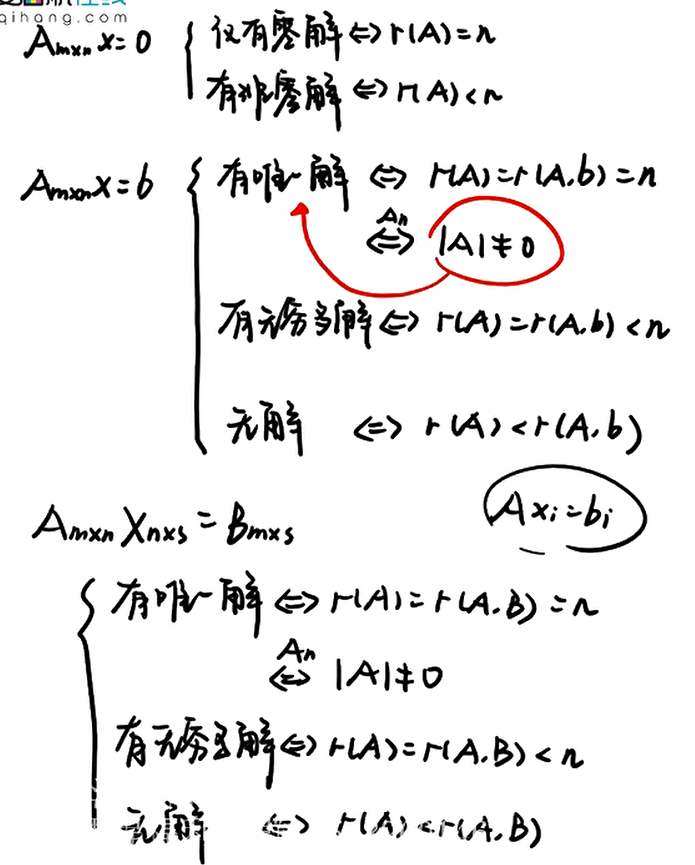 qihang.com
Aₘₓₙ x = 0 { 仅有零解 ⇔ r(A) = n
有非零解 ⇔ r(A) < n
Aₘₓₙ x = b { 有唯一解 ⇔ r(A) = r(A,b) = n
Aₙ ⇔ |A| ≠ 0
有无穷多解 ⇔ r(A) = r(A,b) < n
无解 ⇔ r(A) < r(A,b)
Axᵢ = bᵢ
Aₘₓₙ Xₙₓₛ = Bₘₓₛ
{ 有唯一解 ⇔ r(A) = r(A,B) = n
Aₙ ⇔ |A| ≠ 0
有无穷多解 ⇔ r(A) = r(A,B) < n
无解 ⇔ r(A) < r(A,B)